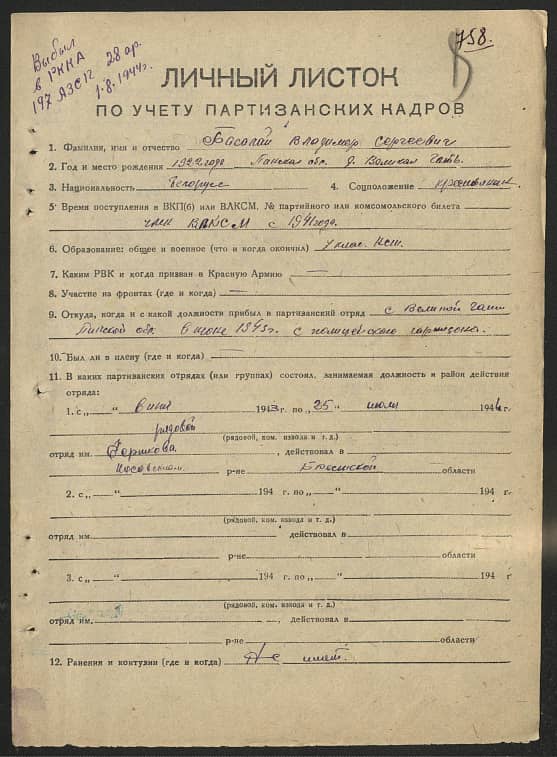 758.
Выбыл
в РККА
197 АЗСП 28 ар.
1.8.1944г.
ЛИЧНЫЙ ЛИСТОК
ПО УЧЕТУ ПАРТИЗАНСКИХ КАДРОВ
1. Фамилия, имя и отчество Басалай Владимир Сергеевич
2. Год и место рождения 1922 года Пинская обл. д. Великая Гать.
3. Национальность белорусс 4. Соцположение крестьянин
5. Время поступления в ВКП(б) или ВЛКСМ, № партийного или комсомольского билета
член ВЛКСМ с 1941 года.
6. Образование: общее и военное (что и когда окончил) 7 клас.
7. Каким РВК и когда призван в Красную Армию —
8. Участие на фронтах (где и когда) —
9. Откуда, когда и с какой должности прибыл в партизанский отряд с Великой Гати
Пинской обл. в июне 1943г. с полицейского гарнизона.
10. Был ли в плену (где и когда) —
11. В каких партизанских отрядах (или группах) состоял, занимаемая должность и район действия
отряда:
1. с „ “ июня 1943 г. по „25 “ июля 1944 г.
рядовой
(рядовой, ком. взвода и т. д.)
отряд им. , действовал в
р-не Брестской области
2. с „ “ 194 г. по „ “ 194 г.
(рядовой, ком. взвода и т. д.)
отряд им. действовал в
р-не области
3. с „ “ 194 г. по „ “ 194 г
(рядовой, ком. взвода и т. д.)
отряд им. , действовал в
р-не области
12. Ранения и контузии (где и когда) Не имеет.